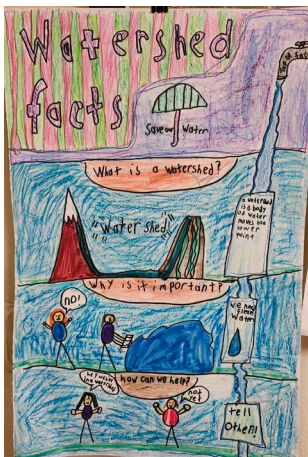 Watershed
facts
Save our Water
What is a watershed?
"Water shed"
a watershed
is a body
of water
moves to a
lower
point
Why is it important?
no!
we need
clean
Water
how can we help?
not
yet
tell
Others!